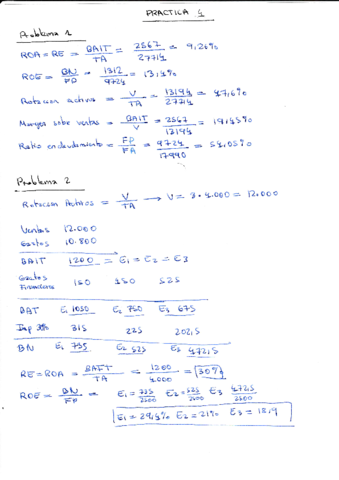 PRACTICA 4
Problema 1
ROA = RE = BAIT / TA = 2567 / 27714 = 9,26%
ROE = BN / FP = 1312 / 9724 = 13,4%
Rotación activo = V / TA = 13194 / 27714 = 47,6%
Margen sobre ventas = BAIT / V = 2567 / 13194 = 19,45%
Ratio endeudamiento = FP / FA = 9724 / 17990 = 54,05%
Problema 2
Rotación Activos = V / TA → V = 3 · 4.000 = 12.000
Ventas 12.000
Gastos 10.800
BAIT 1200 = E1 = E2 = E3
Gastos Financieros 150 450 525
BAT E1 1050 E2 750 E3 675
Imp 30% 315 225 202,5
BN E1 735 E2 525 E3 472,5
RE = ROA = BAIT / TA = 1200 / 4.000 = 30%
ROE = BN / FP = E1 = 735 / 2500 E2 = 525 / 2500 E3 472,5 / 2500
E1 = 29,4% E2 = 21% E3 = 18,9